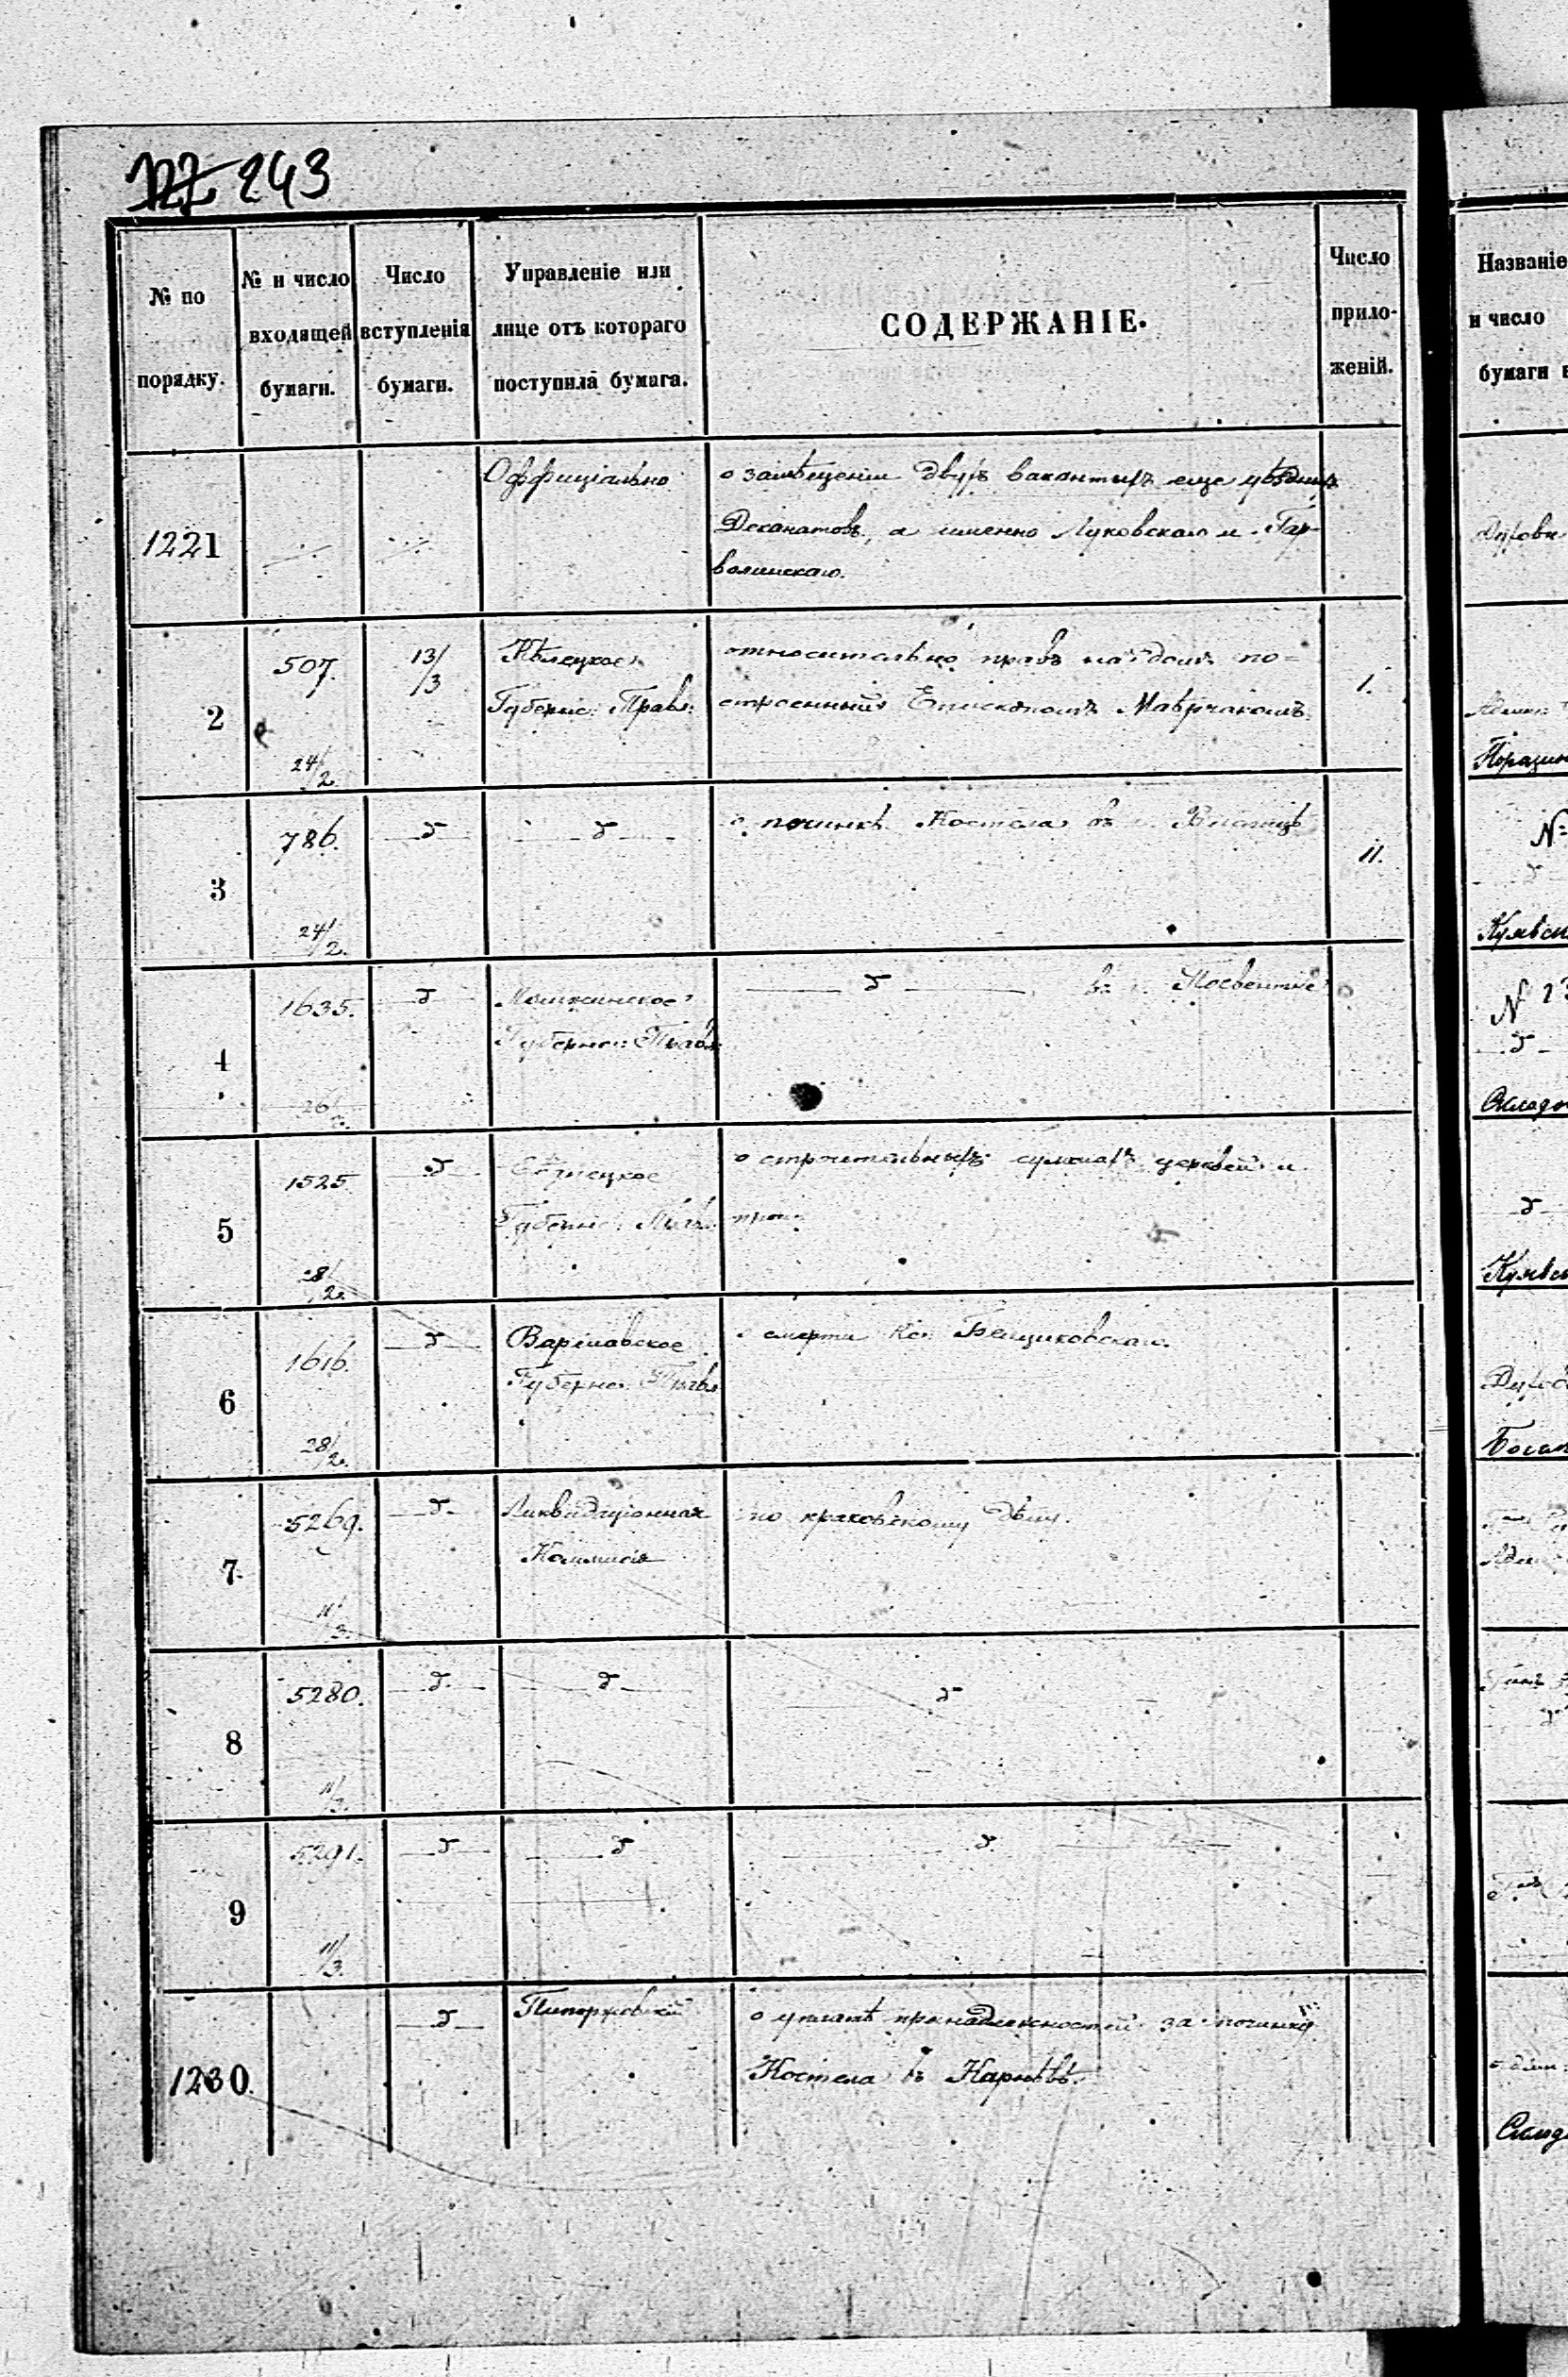 243
№ по порядку.
№ и число входящей бумаги.
Число вступленія бумаги.
Управленіе или лице отъ котораго поступила бумага.
СОДЕРЖАНІЕ.
Число приложеній.
Названіе
и число
бумаги
1221
Оффиціально
о замѣщеніи двухъ вакантныхъ еще уѣздныхъ
Деканатовъ, а именно Луковскаго и Гар-
волинскаго.
2
507.
24/2
13/3
Кѣлецкое
Губернс: Правл:
относительно правъ на домъ по=
строенный Епископомъ
1.
3
786.
24/2.
д
д
о починкѣ Костела въ
11.
4
1635.
26/2.
д
Ломжинское
Губернс: Правл:
д въ Посвентне
5
1525.
28/2.
д
Сѣдлецкое
Губернс: Правл:
о строительныхъ суммахъ церквей и
проч.
6
1616.
28/2.
д
Варшавское
Губернс: Правл
о смерти Кс:
7
5269.
11/3.
д
Ликвидаціонная
Коммисія
по краковскому дѣлу.
8
5280.
11/3.
д
д
д
9
5291.
11/3.
д
д
д
1230.
д
о уплатѣ принадлежностей за починку
Костела въ Карневѣ.